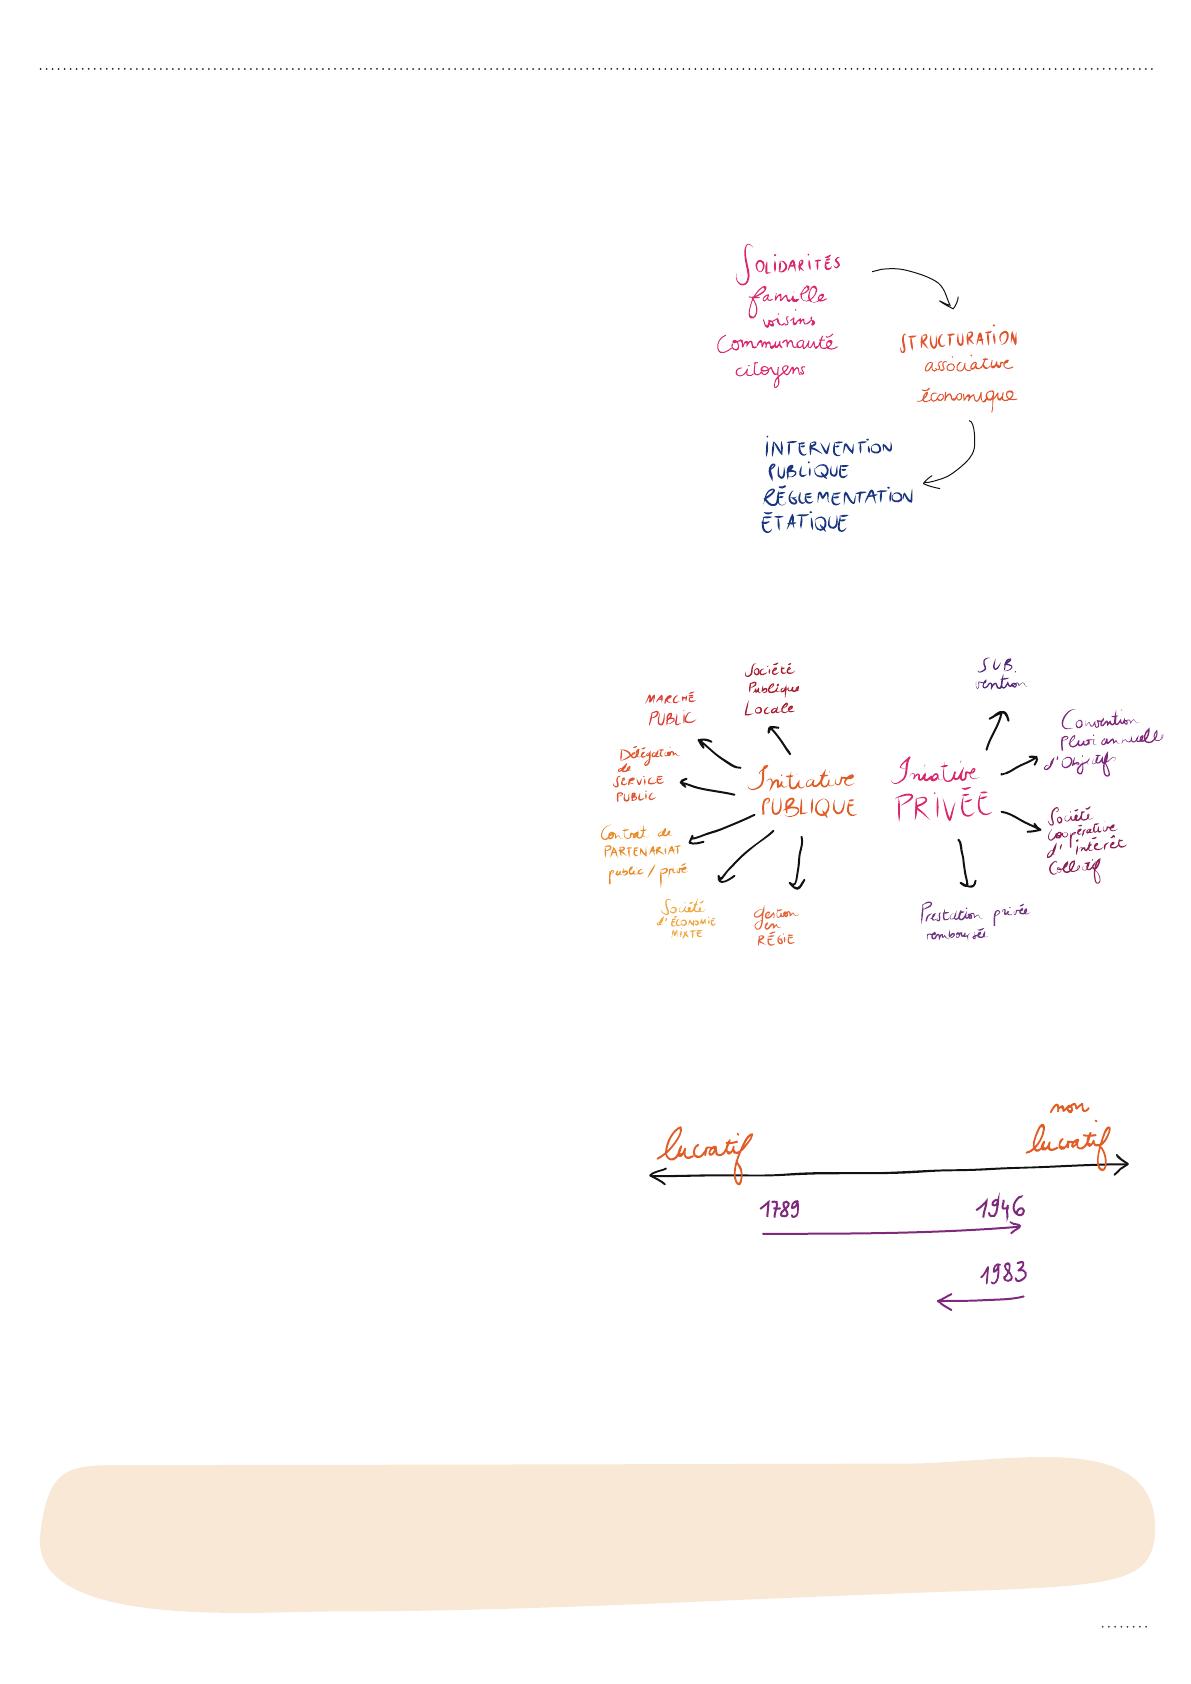 SOLIDARITÉS
famille
voisins
Communauté
citoyens
STRUCTURATION
associative
économique
INTERVENTION
PUBLIQUE
RÉGLEMENTATION
ÉTATIQUE
Société
Publique
Locale
MARCHÉ
PUBLIC
Délégation
de
SERVICE
PUBLIC
Contrat de
PARTENARIAT
public / privé
Société
d'ÉCONOMIE
MIXTE
gestion
en
RÉGIE
Initiative
PUBLIQUE
Iniative
PRIVÉE
SUB.
vention
Convention
Pluriannuelle
d'Objectifs
Société
Coopérative
d'intérêt
Collectif
Prestation privée
remboursée
lucratif
non
lucratif
1789
1946
1983